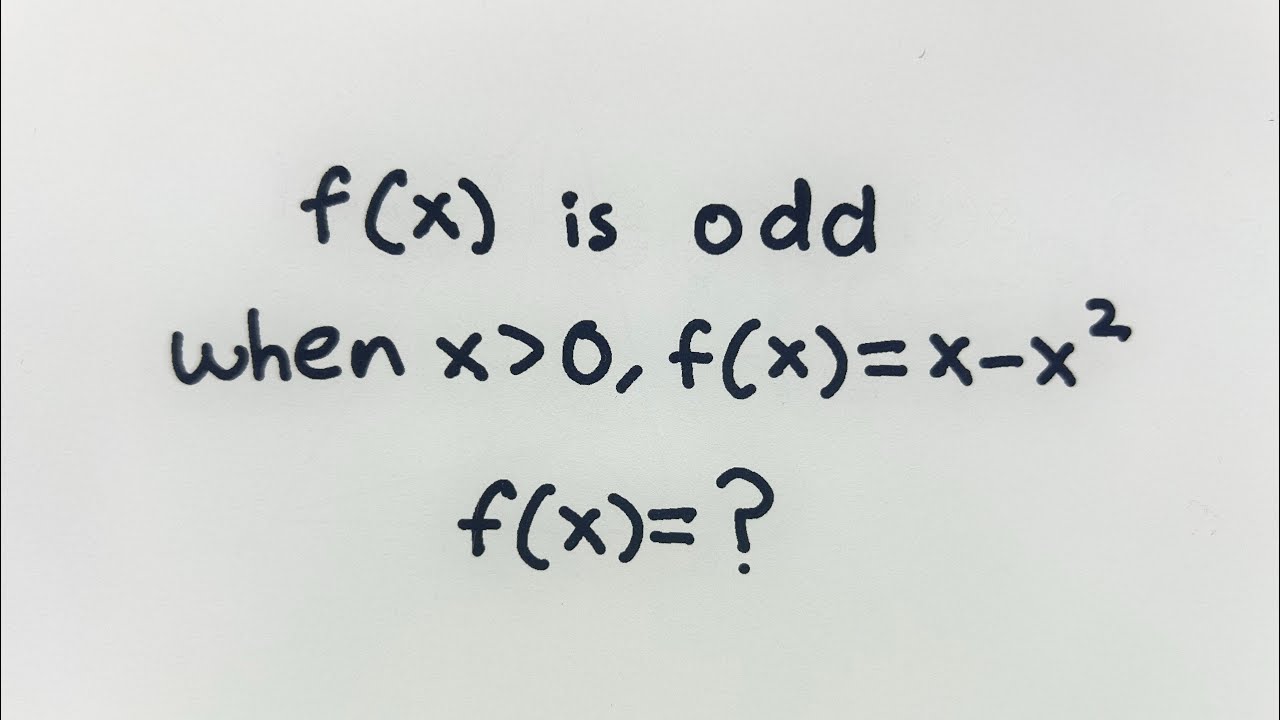 f(x) is odd
when x>0, f(x)=x-x²
f(x)=?